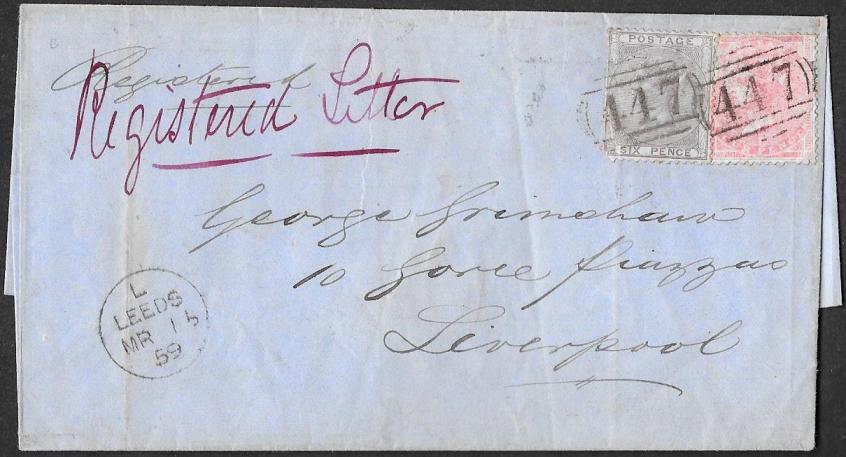 Registered
Registered Letter
POSTAGE
SIX PENCE
447
447
George Grimshaw
10 Goree Piazzas
Liverpool
L
LEEDS
MR 15
59